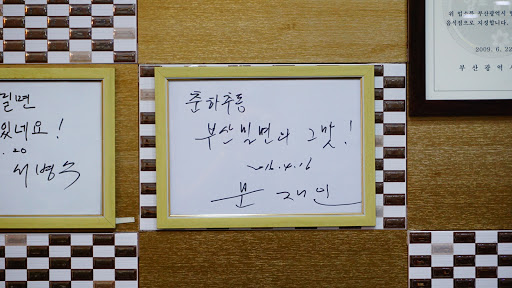 밀면
있네요!
. 20
서병수
춘하추동
부산밀면의 그맛!
2016.4.16
문재인
위 업소를 부산광역시
음식점으로 지정합니다.
2009. 6. 22
부 산 광 역 시